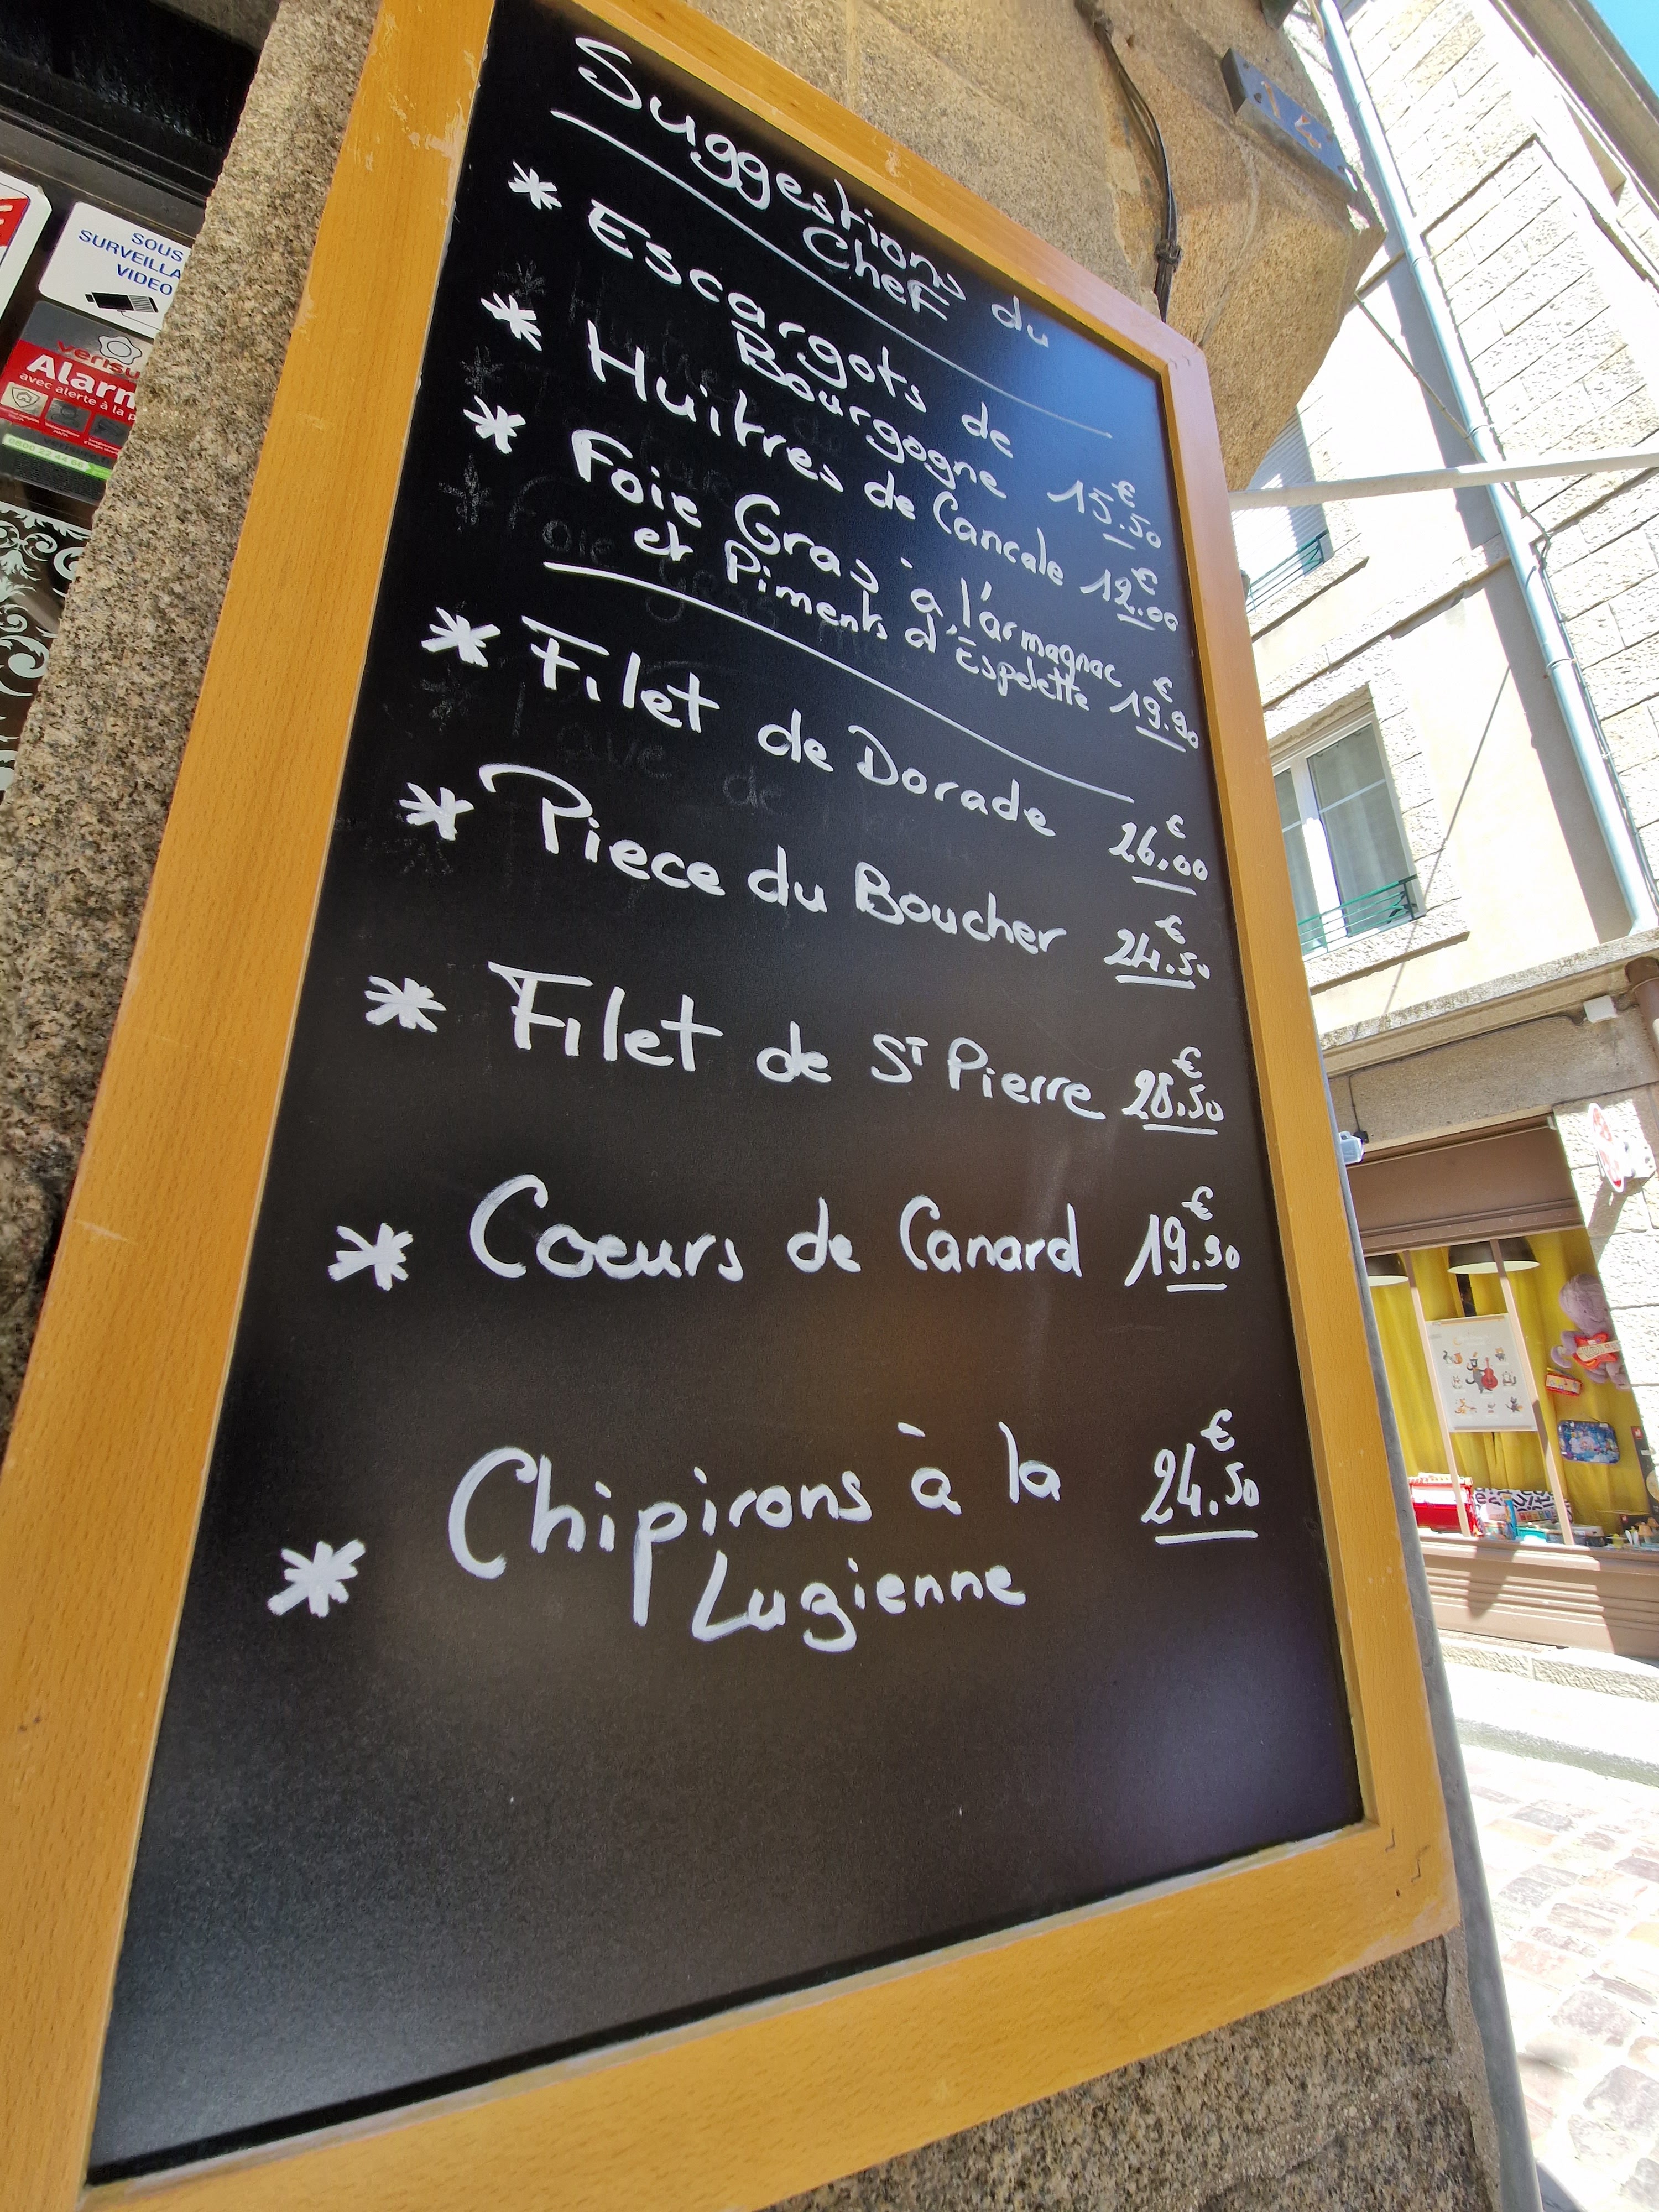 Suggestions du
Chef
* Escargots de
Bourgogne 15.50€
* Huitres de Cancale 12.00€
* Foie Gras à l'armagnac
et Piments d'Espelette 19.90€
* Filet de Dorade 26.00€
* Piece du Boucher 24.50€
* Filet de St Pierre 28.50€
* Coeurs de Canard 19.90€
* Chipirons à la 24.50€
Luzienne
SOUS
SURVEILLA
VIDEO
verisu
Alarm
avec alerte à la p
0800 22 44 66